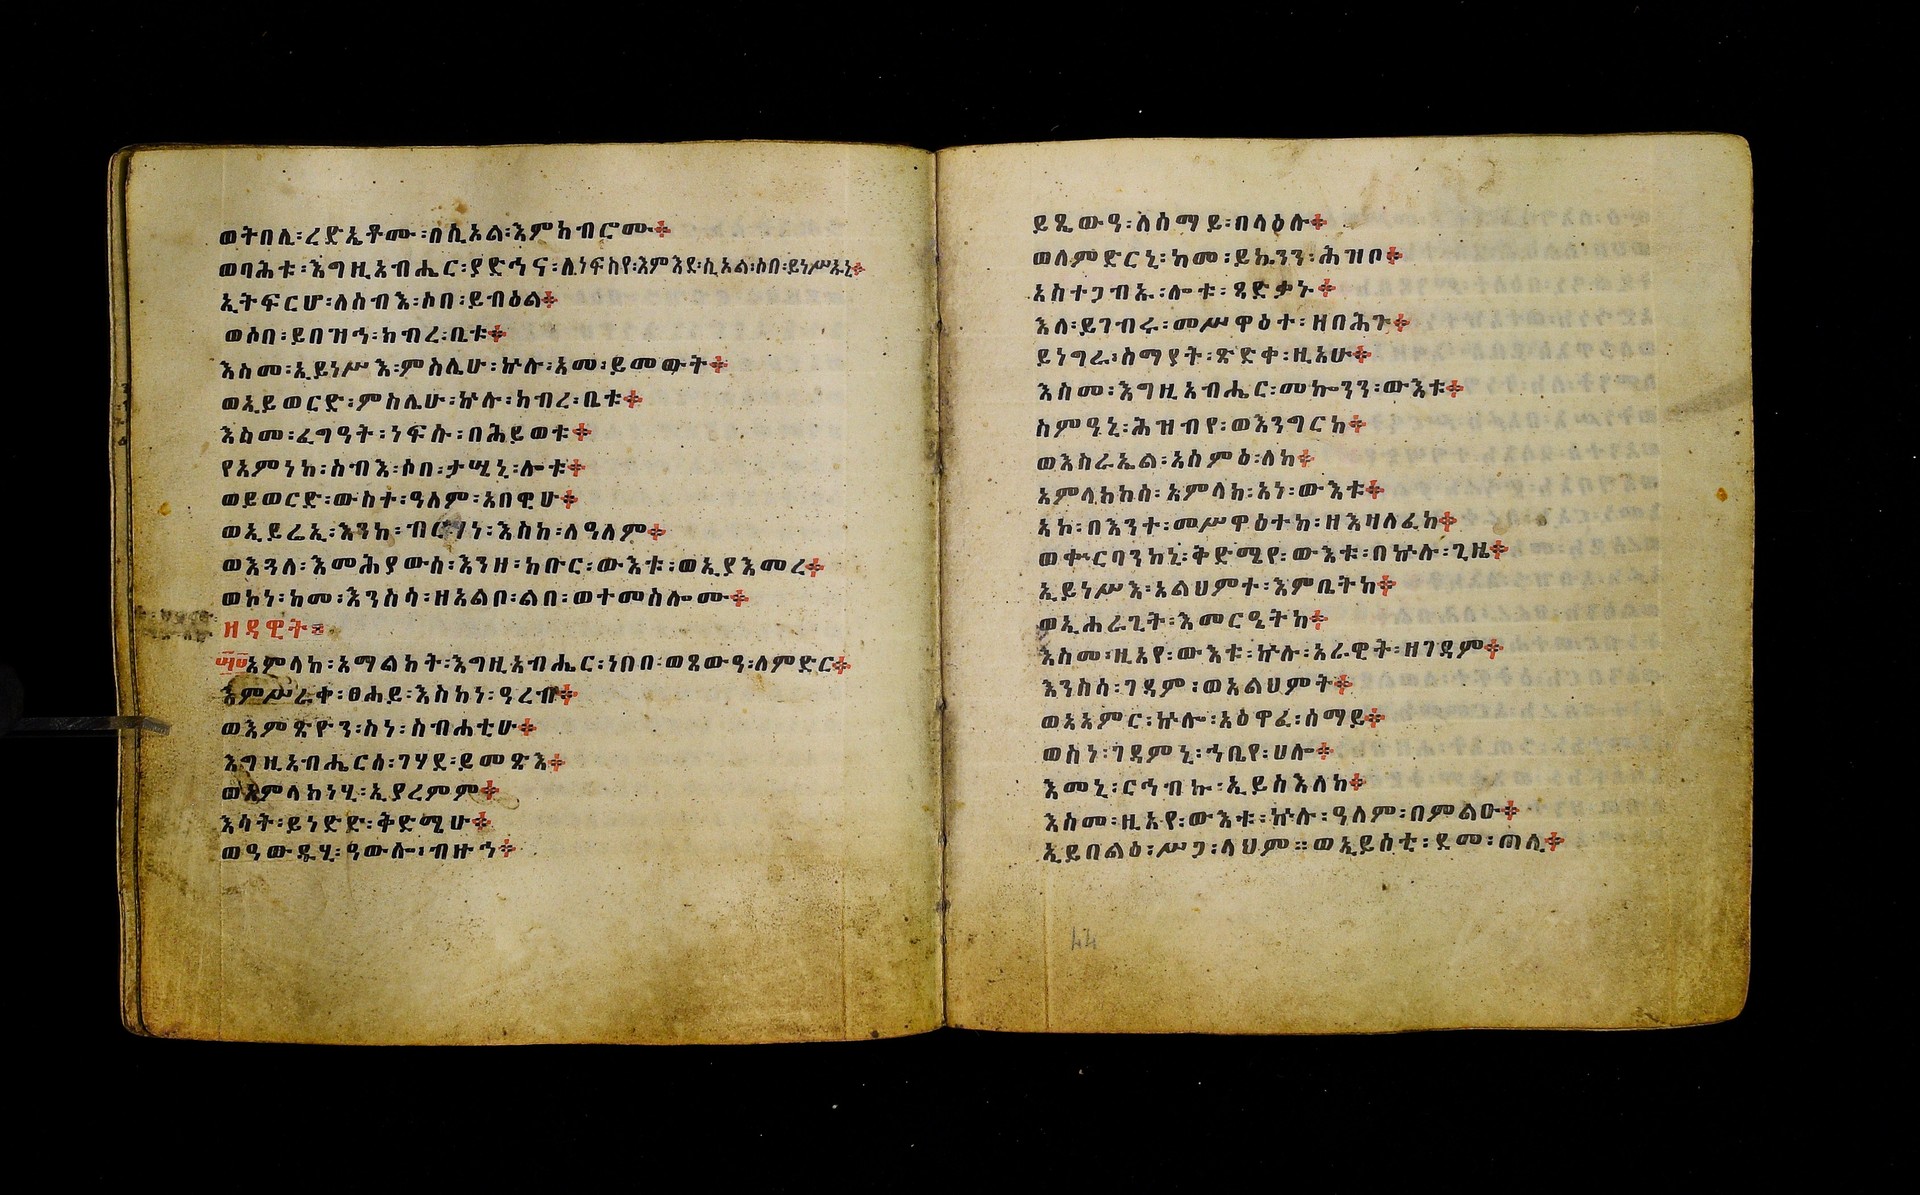 ወትበሊ፡ረድኤቶሙ፡በሲኦል፡እምክብሮሙ፨
ወባሕቱ፡እግዚአብሔር፡ያድኅና፡ለነፍስየ፡እምእደ፡ሲኦል፡ሶበ፡ይነሥኡኒ፨
ኢትፍርሆ፡ለሰብእ፡ሶበ፡ይብዕል፨
ወሶበ፡ይበዝኅ፡ክብረ፡ቤቱ፨
እስመ፡ኢይነሥእ፡ምስሌሁ፡ኵሎ፡አመ፡ይመውት፨
ወኢይወርድ፡ምስሌሁ፡ኵሉ፡ክብረ፡ቤቱ፨
እስመ፡ፈግዓት፡ነፍሱ፡በሕይወቱ፨
የአምነከ፡ሰብእ፡ሶበ፡ታሤኒ፡ሎቱ፨
ወይወርድ፡ውስተ፡ዓለም፡አበዊሁ፨
ወኢይሬኢ፡እንከ፡ብርሃነ፡እስከ፡ለዓለም፨
ወእጓለ፡እመሕያውስ፡እንዘ፡ክቡር፡ውእቱ፡ወኢያእመረ፨
ወኮነ፡ከመ፡እንስሳ፡ዘአልቦ፡ልበ፡ወተመስሎሙ፨
ዘዳዊት፡
፵፱ አምላከ፡አማልክት፡እግዚአብሔር፡ነበበ፡ወጸውዓ፡ለምድር፨
እምሥራቀ፡ፀሐይ፡እስከነ፡ዓረብ፨
ወእምጽዮን፡ስነ፡ስብሐቲሁ፨
እግዚአብሔርሰ፡ገሃደ፡ይመጽእ፨
ወአምላክነሂ፡ኢያረምም፨
እሳት፡ይነድድ፡ቅድሜሁ፨
ወዓውዱሂ፡ዓውሎ፡ብዙኅ፨
ይጼውዓ፡ለሰማይ፡በላዕሉ፨
ወለምድርኒ፡ከመ፡ይኰንን፡ሕዝቦ፨
አስተጋብኡ፡ሎቱ፡ጻድቃኑ፨
እለ፡ይገብሩ፡መሥዋዕተ፡ዘበሕጉ፨
ይነግራ፡ሰማያት፡ጽድቀ፡ዚአሁ፨
እስመ፡እግዚአብሔር፡መኰንን፡ውእቱ፨
ስምዓኒ፡ሕዝብየ፡ወእንግርከ፨
ወእስራኤል፡አስምዕ፡ለከ፨
አምላክከስ፡አምላክ፡አነ፡ውእቱ፨
አኮ፡በእንተ፡መሥዋዕተከ፡ዘእዛለፈከ፨
ወቍርባንከኒ፡ቅድሜየ፡ውእቱ፡በኵሉ፡ጊዜ፨
ኢይነሥእ፡አልህምተ፡እምቤትከ፨
ወኢሐራጊት፡እመርዔትከ፨
እስመ፡ዚአየ፡ውእቱ፡ኵሉ፡አራዊት፡ዘገዳም፨
እንስሳ፡ገዳም፡ወአልህምት፨
ወአአምር፡ኵሎ፡አዕዋፈ፡ሰማይ፨
ወስነ፡ገዳምኒ፡ኀቤየ፡ሀሎ፨
እመኒ፡ርኅብኩ፡ኢይስእለከ፨
እስመ፡ዚአየ፡ውእቱ፡ኵሉ፡ዓለም፡በምልዑ፨
ኢይበልዕ፡ሥጋ፡ላህም፡፡ወኢይሰቲ፡ደመ፡ጠሊ፨
44